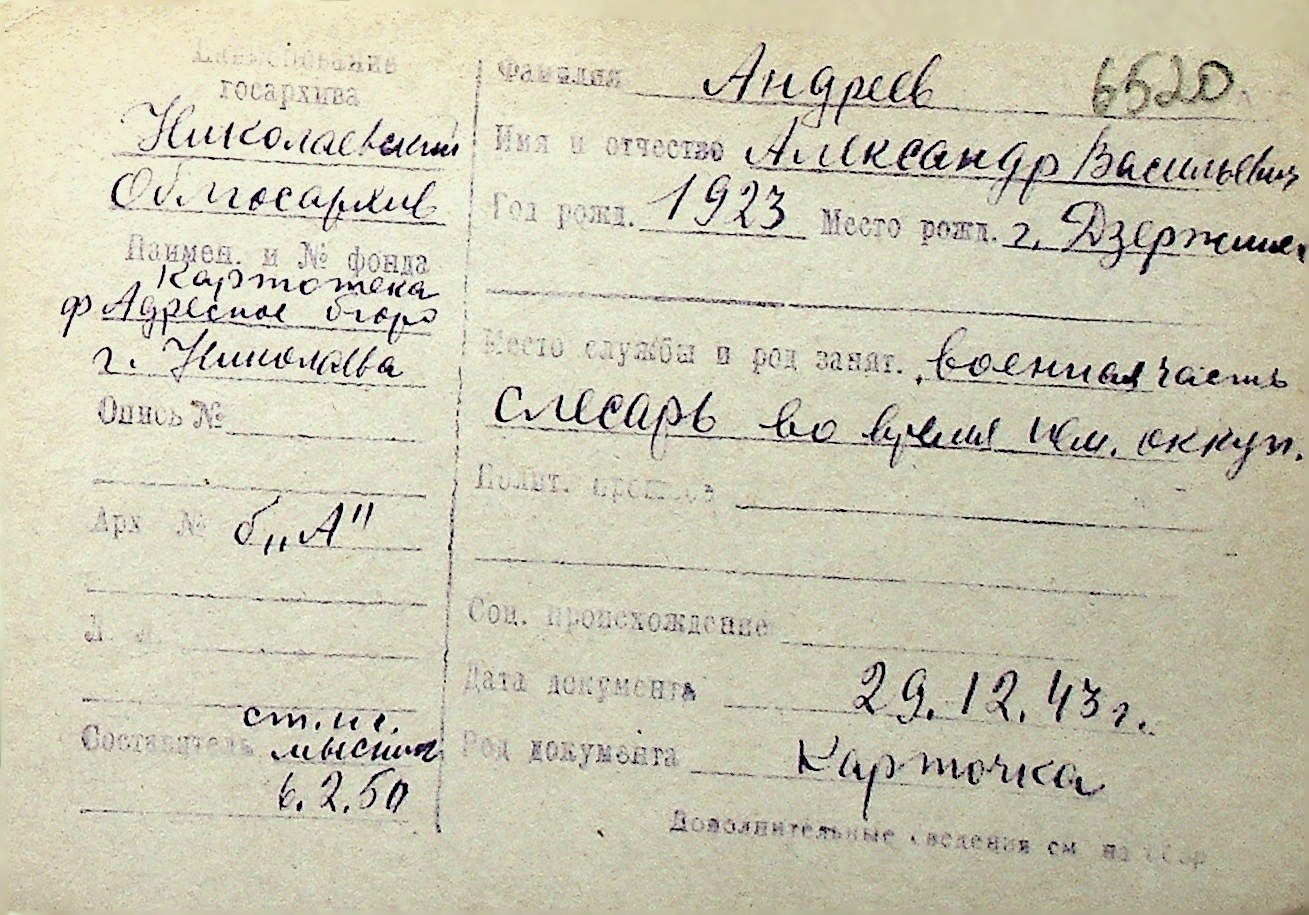 Наименование
госархива
Николаевский
Облгосархив
Наимен. и № фонда
Картотека
ф Адресное бюро
г. Николаева
Опись №
Арх №
б„А"
Л. л.
Составитель
ст. н.
6.2.50
Фамилия Андреев
6520
Имя и отчество Александр Васильевич
Год рожд. 1923 Место рожд. г. Дзержинск
Место службы и род занят. военная часть
слесарь во время нем. оккуп.
Полит. прошлое
Соц. происхождение
Дата документа 29.12.43 г.
Род документа Карточка
Дополнительные сведения см. на обор.